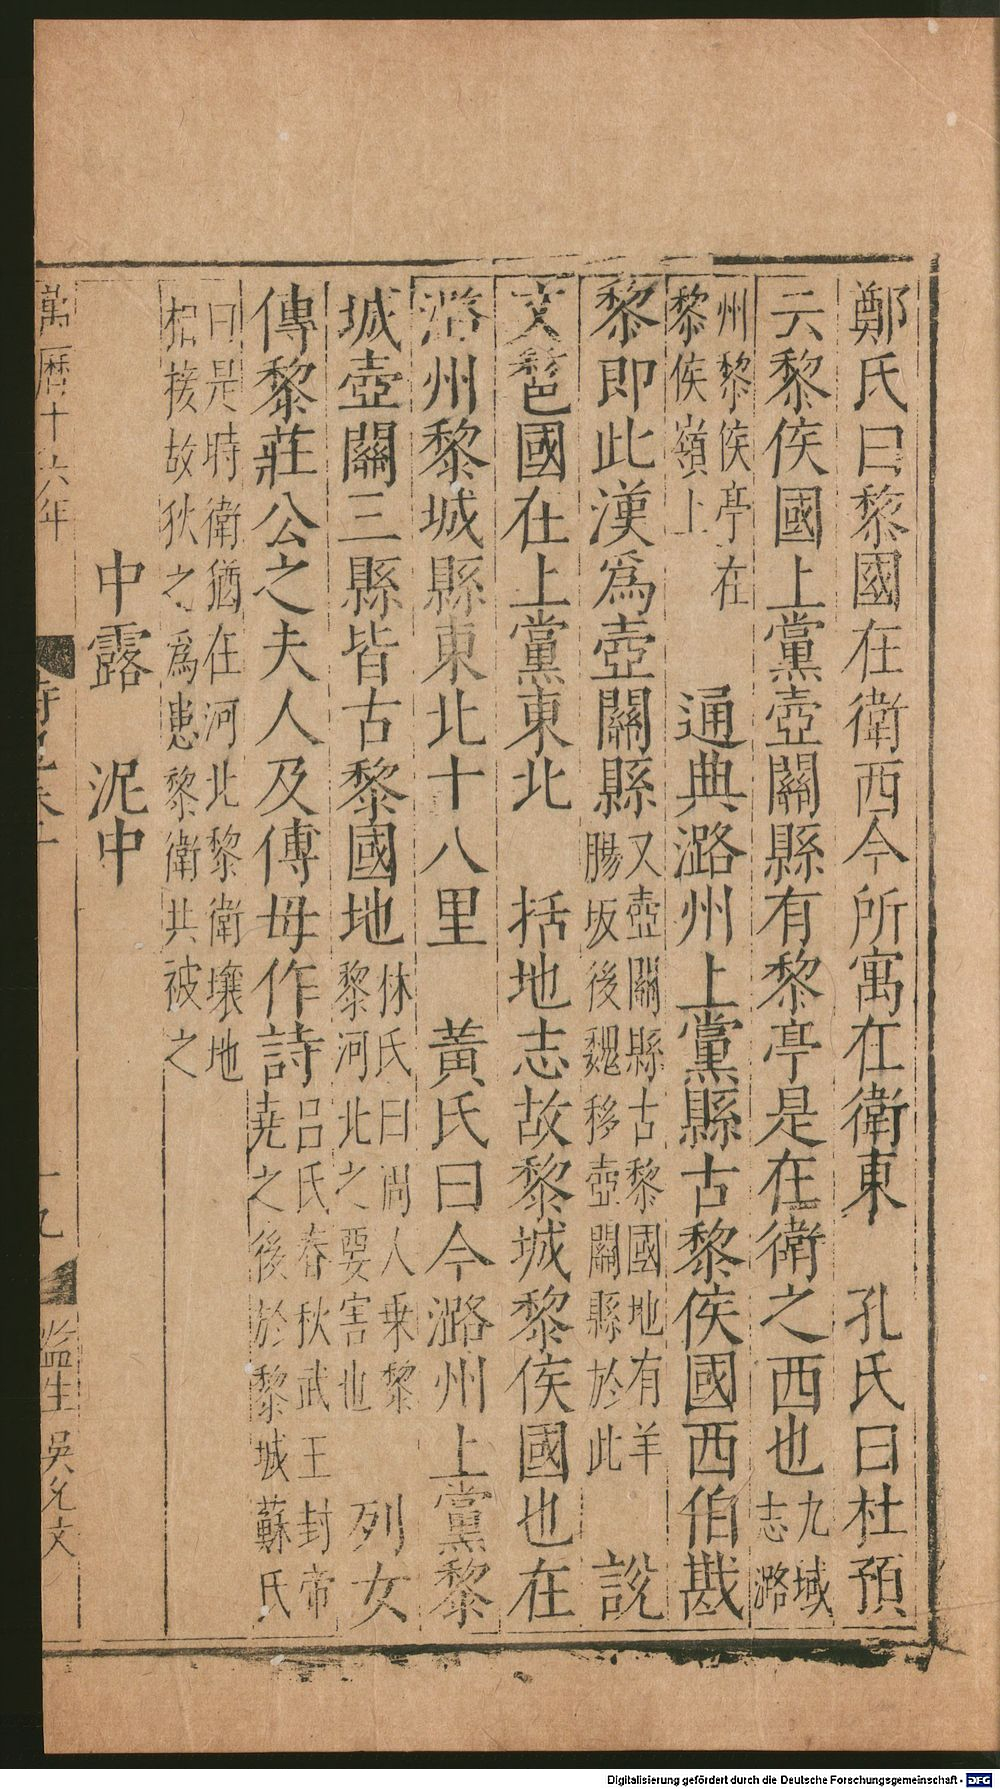 鄭氏曰黎國在衛西今所寓在衛東　孔氏曰杜預
云黎侯國上黨壺關縣有黎亭是在衛之西也九域志潞
州黎侯亭在黎侯嶺上　通典潞州上黨縣古黎侯國西伯戡
黎即此漢爲壺關縣又壺關縣古黎國地有羊腸坂後魏移壺關縣於此　說
文𨛫國在上黨東北　括地志故黎城黎侯國也在
潞州黎城縣東北十八里　黃氏曰今潞州上黨黎
城壺關三縣皆古黎國地林氏曰周人乘黎黎河北之要害也　列女
傳黎莊公之夫人及傅母作詩呂氏春秋武王封帝堯之後於黎城蘇氏
曰是時衛猶在河北黎衛壤地相接故狄之爲患黎衛共被之
中露　泥中
萬曆十六年
十九
監生吳允文
Digitalisierung gefördert durch die Deutsche Forschungsgemeinschaft - DFG